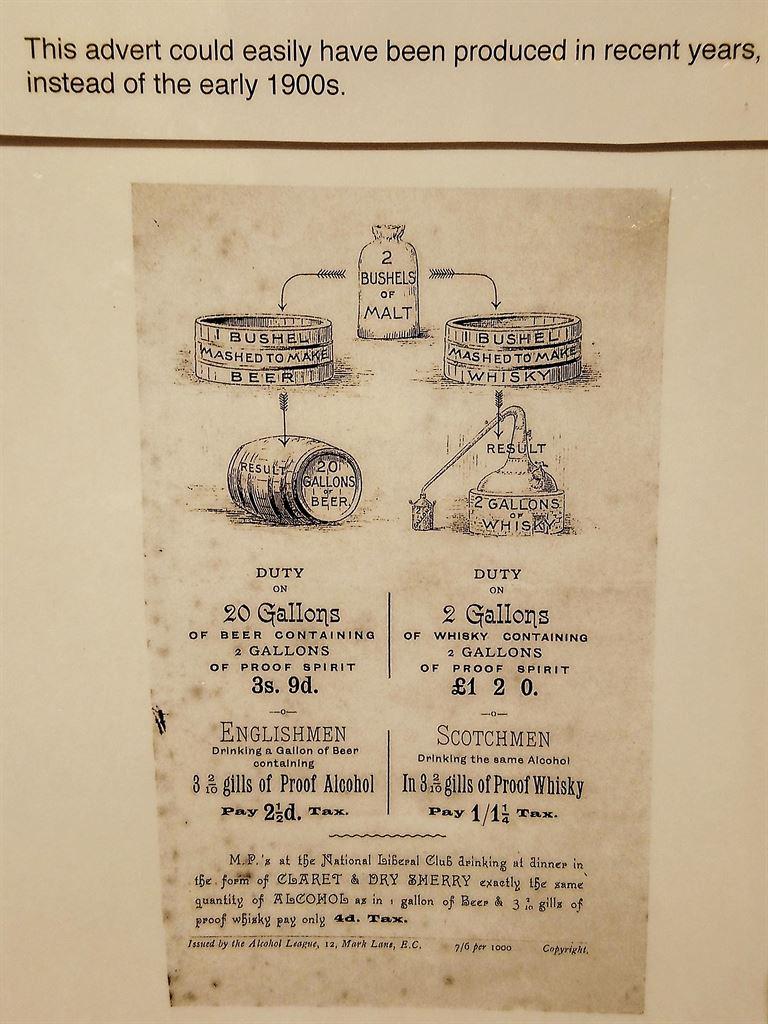 This advert could easily have been produced in recent years,
instead of the early 1900s.
2
BUSHELS
OF
MALT
1 BUSHEL
MASHED TO MAKE
BEER
1 BUSHEL
MASHED TO MAKE
WHISKY
RESULT
20
GALLONS
OF
BEER.
RESULT
2 GALLONS
OF
WHISKY
DUTY
ON
20 Gallons
OF BEER CONTAINING
2 GALLONS
OF PROOF SPIRIT
3s. 9d.
DUTY
ON
2 Gallons
OF WHISKY CONTAINING
2 GALLONS
OF PROOF SPIRIT
£1 2 0.
ENGLISHMEN
Drinking a Gallon of Beer
containing
3 2/10 gills of Proof Alcohol
Pay 2½d. Tax.
SCOTCHMEN
Drinking the same Alcohol
In 3 2/10 gills of Proof Whisky
Pay 1/1¼ Tax.
M.P.'s at the National Liberal Club drinking at dinner in
the form of CLARET & DRY SHERRY exactly the same
quantity of ALCOHOL as in 1 gallon of Beer & 3 2/10 gills of
proof whisky pay only 4d. Tax.
Issued by the Alcohol League, 12, Mark Lane, E.C. 7/6 per 1000 Copyright.